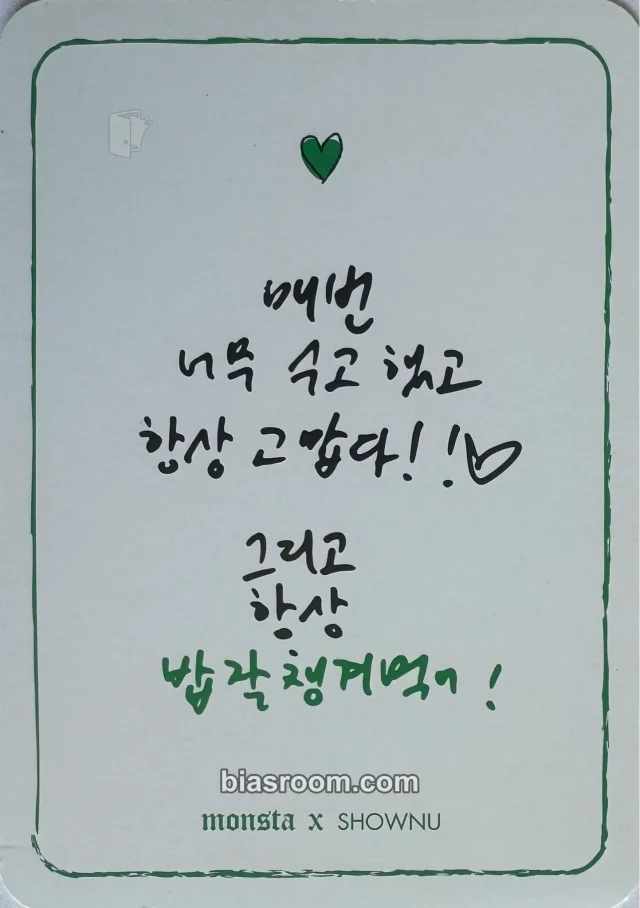 매번
너무 수고 했고
항상 고맙다!!♡
그리고
항상
밥 잘 챙겨먹어!
biasroom.com
monsta x SHOWNU